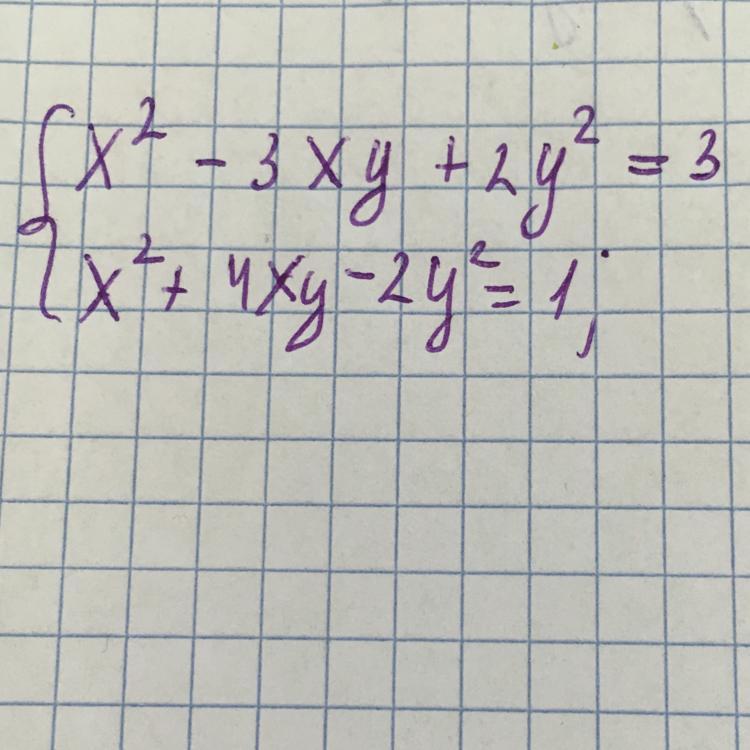 x² - 3xy + 2y² = 3
x² + 4xy - 2y² = 1;